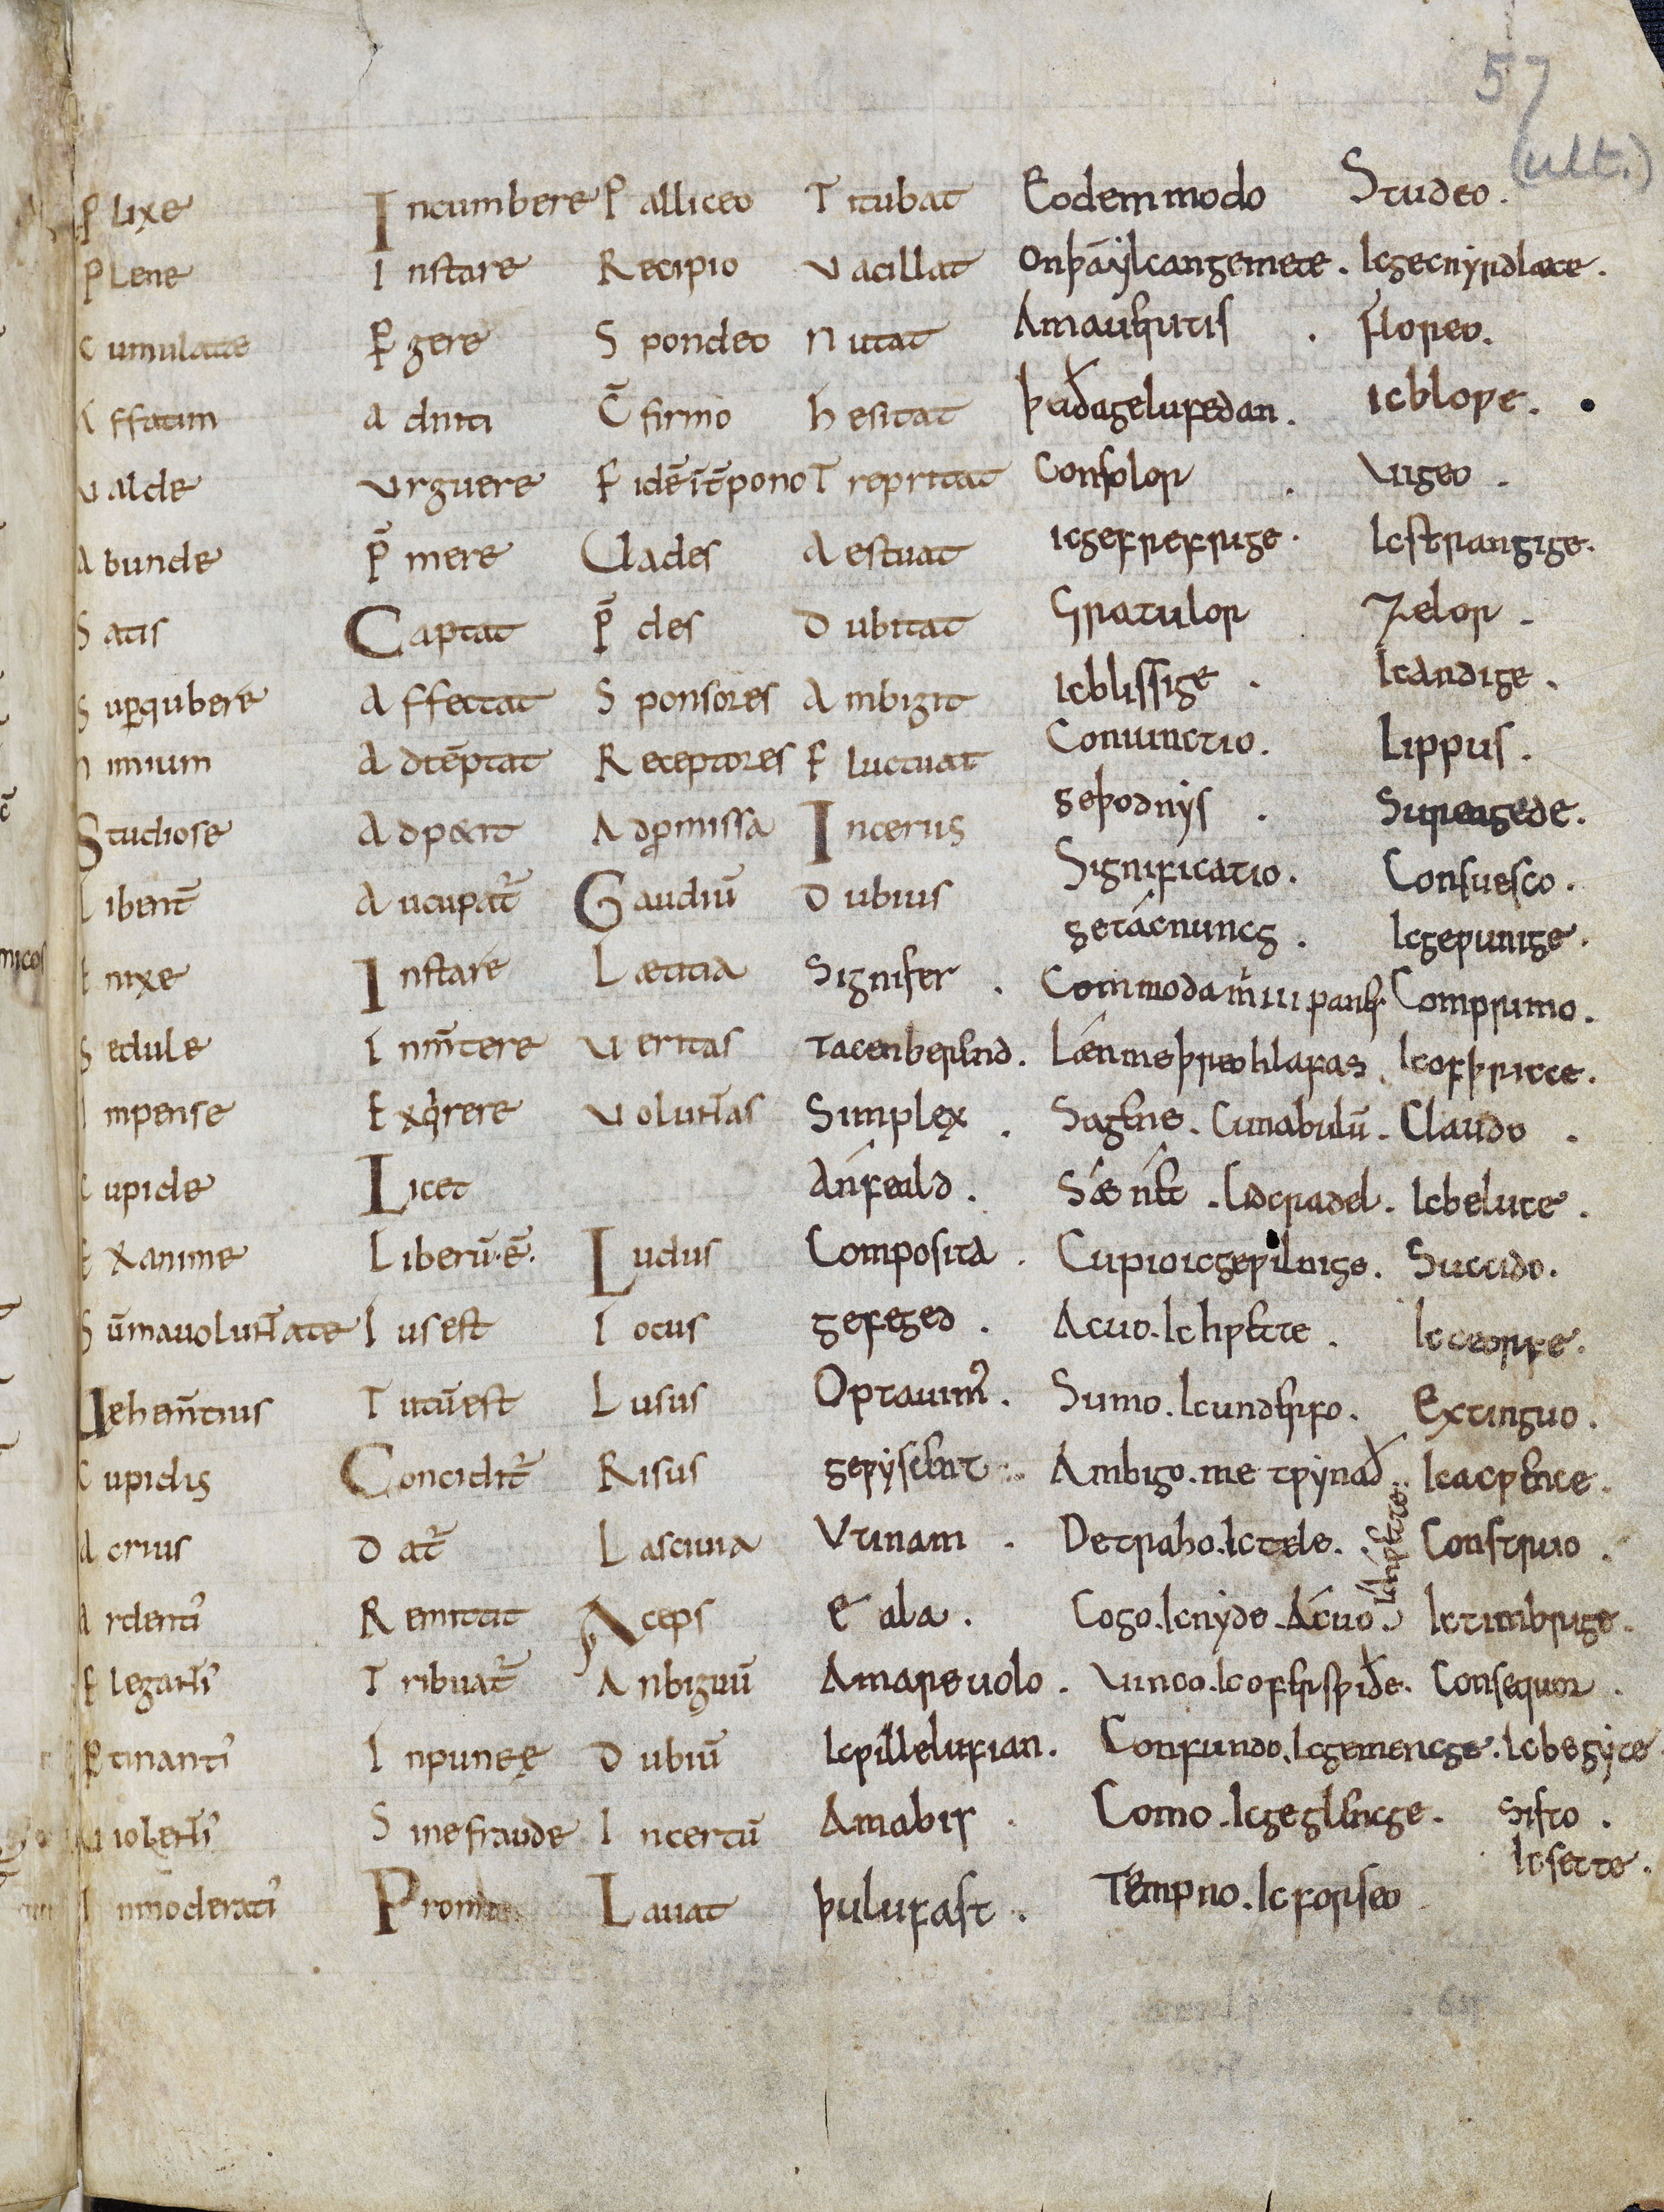 57
(ult.)
P lixe
P lene
C umulate
A ffatim
U alde
A bunde
S atis
S uperqubere
N imium
Studiose
L ibent̄
E nixe
S edule
I mpense
C upide
E xanime
S ūmauoluntate
Uehem̄tius
C upidis
A crius
A rdenti
E leganti
P tinanti
U iolenti
I nmoderati
I ncumbere
I nstare
P gere
A dniti
U rguere
P̄ mere
Captat
A ffectat
A dtēptat
A dpetit
A ucupat̄
I nstare
I nmittere
E xqirere
Licet
L iberū.ē.
I us est
T utū est
Conciditr̄
D at̄
R emittit
T ribuat̄
I npune
S inefraude
P alliceo
R ecipio
S pondeo
C̄ firmo
F idē īt̄pono
Clades
P̄ des
S ponsores
R eceptores
A dpromissa
Gaudiū
L ætitia
U eritas
U oluntas
Ludus
I ocus
L usus
R isus
L asciuia
Anceps
A nbiguū
D ubiū
I ncertū
Lauat
T itubat
V acillat
N utat
h esitat
T repitat
A estuat
D ubitat
A mbigit
F luctuat
Incertus
D ubius
Signifer .
tacenberend.
Simplex .
Anfeald .
Composita .
gefeged .
Optauim̄ .
geƿyscent .
Vtinam .
E ala .
Amare uolo .
Ic ƿille lufian.
Amabir .
þu lufast .
Eodem modo
on þā ylcan gemete .
Amaueritis .
þa đa gelufedan .
Consolor .
ic gefrefrige .
Gratulor
ic blissige .
Coniunctio.
geþodnys .
Significatio .
getácnuncg .
Commoda m̄ iii panes
Læn me þreo hlafas .
Sagene . Cunabulū .
Sǽ nett . Cildcradel .
Cupio ic geƿilnige .
Acuo . Ic hƿette .
Sumo . Ic underfo .
Ambigo . me tƿynađ .
Detraho . Ic tæle .
Cogo . Ic nyde . Acuo .
Ic hƿette.
Vinco . Ic ofersƿiđe .
Confundo . Ic gemencge .
Como . Ic geglencge .
Tempno . Ic forseo
Studeo .
Ic gecnyrdlæce .
Floreo .
ic bloƿe .
Vigeo .
Ic strangige .
Zelor .
Ic andige .
Lippus .
Surengede .
Consuesco .
Ic geƿunige .
Comprimo .
Ic ofþricce .
Claudo .
Ic beluce .
Succido .
Ic ceorfe .
Extinguo .
Ic acƿence .
Construo .
Ic timbrige .
Consequor .
Ic begyte
Sisto .
Ic sette .